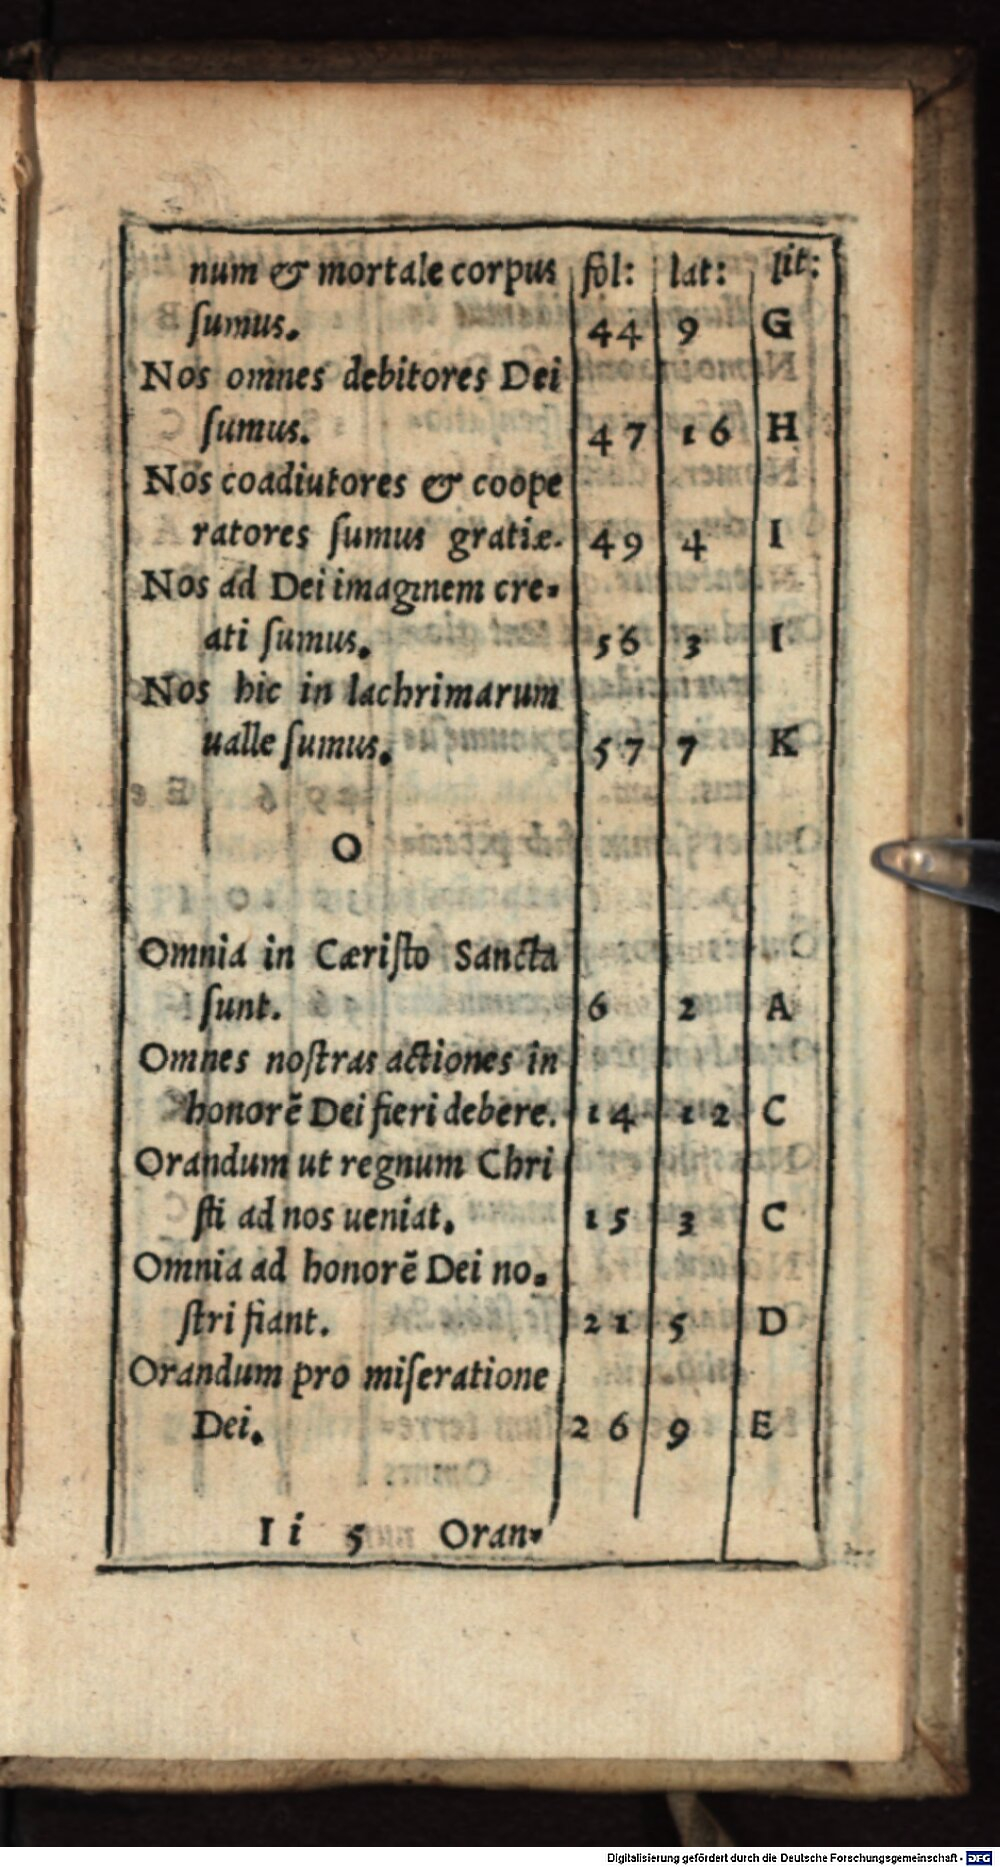 num & mortale corpus fol: lat: lit:
ſumus. 44 9 G
Nos omnes debitores Dei
ſumus. 47 16 H
Nos coadiutores & coope
ratores ſumus gratiæ. 49 4 I
Nos ad Dei imaginem cre-
ati ſumus. 56 3 I
Nos hic in lachrimarum
ualle ſumus. 57 7 K
O
Omnia in Cæriſto Sancta
ſunt. 6 2 A
Omnes noſtras actiones in
honorẽ Dei fieri debere. 14 12 C
Orandum ut regnum Chri
ſti ad nos ueniat. 15 3 C
Omnia ad honorẽ Dei no-
ſtri fiant. 21 5 D
Orandum pro miſeratione
Dei. 26 9 E
I i 5 Oran-
Digitalisierung gefördert durch die Deutsche Forschungsgemeinschaft - DFG